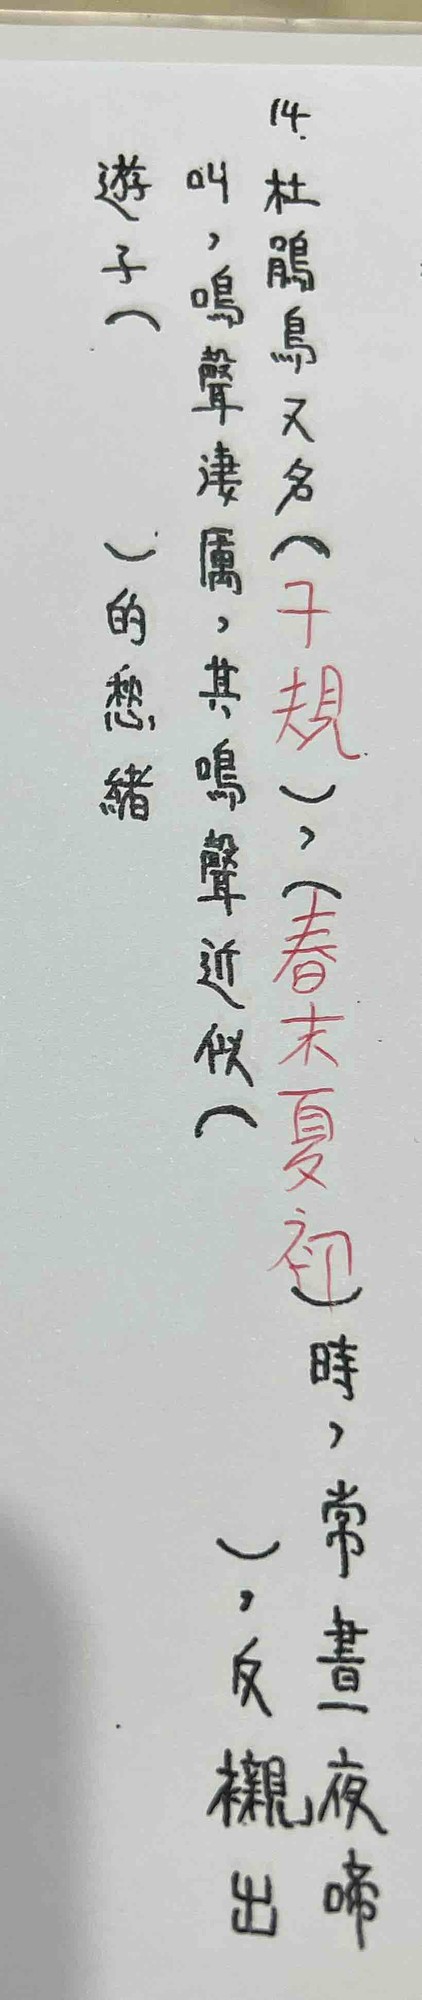 14.杜鵑鳥又名(子規),(春末夏初)時,常晝夜啼
叫,鳴聲淒厲,其鳴聲近似(　　　　),反襯出
遊子(　　　　)的愁緒